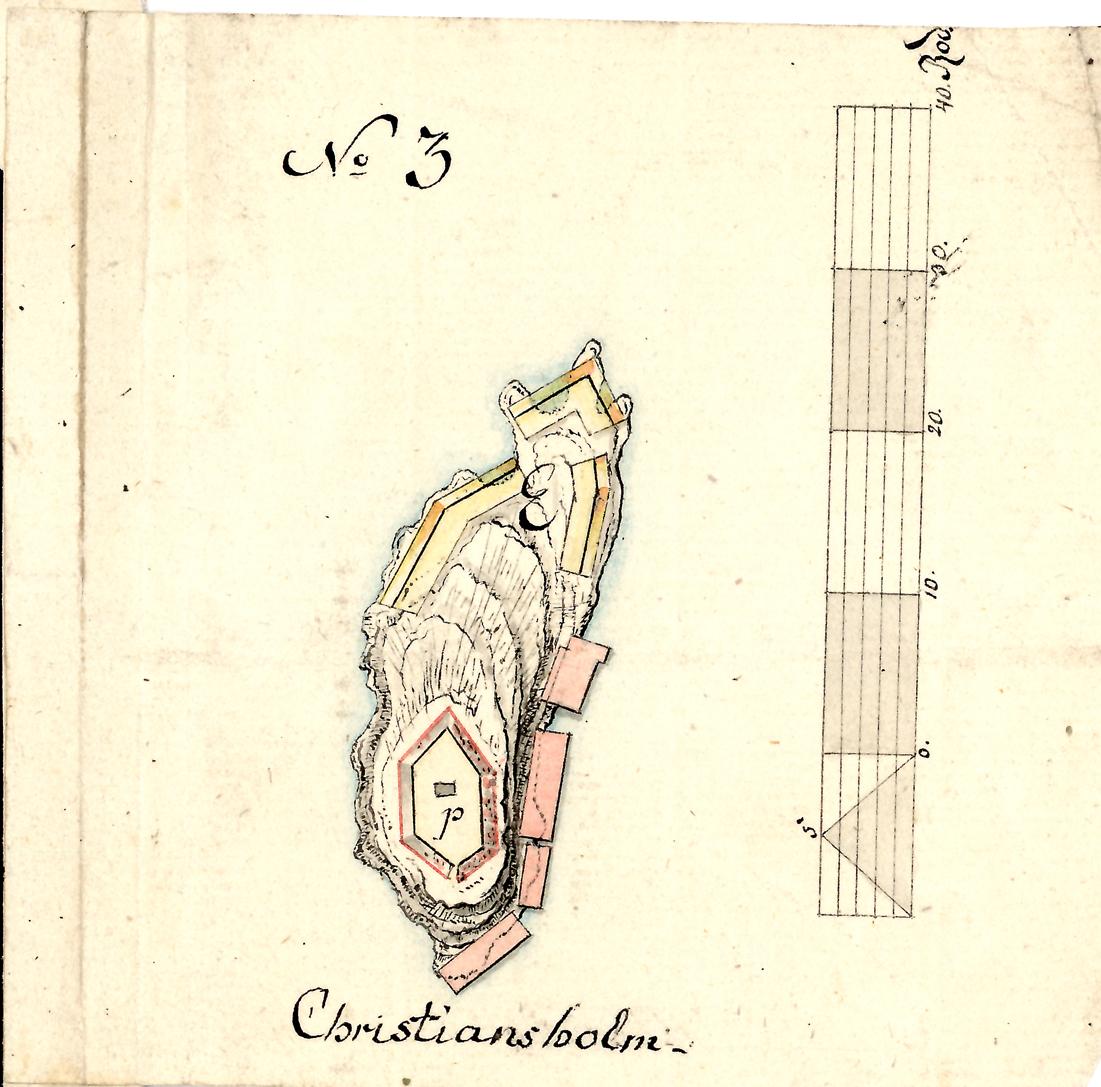 No 3
E
p
Christiansholm
40.
30.
20.
10.
0.
5